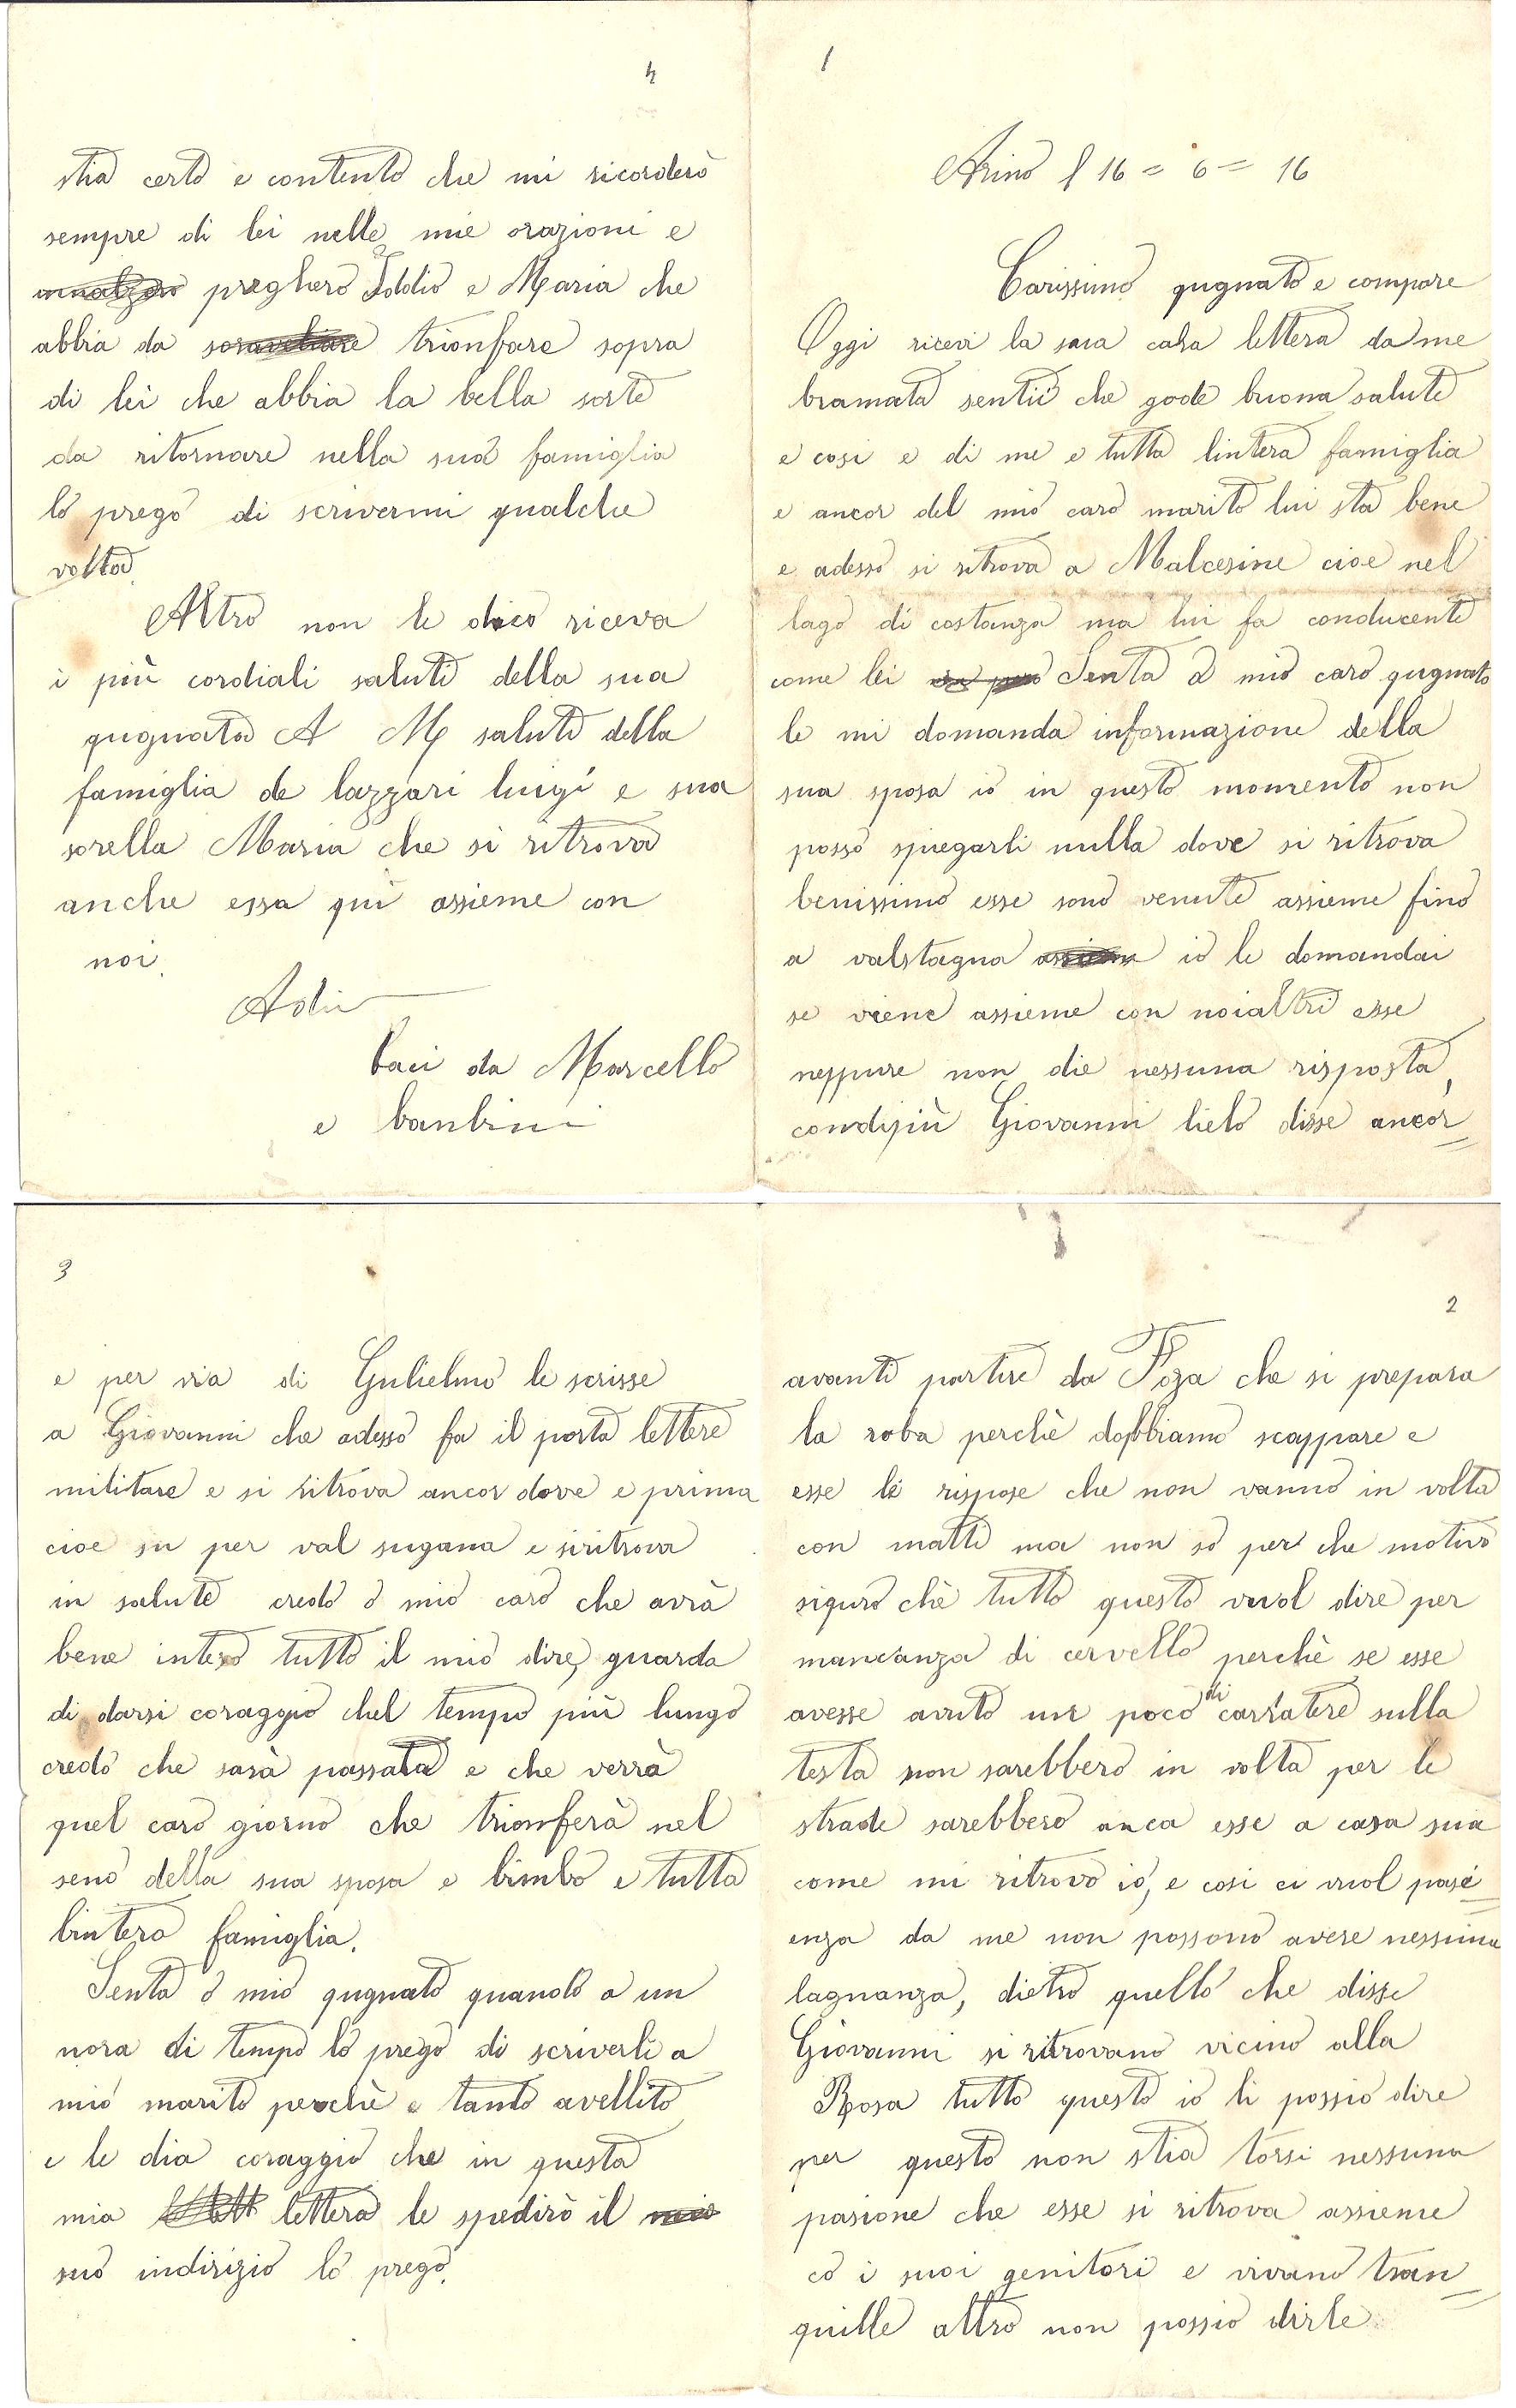 1
Arino l 16 = 6 = 16
Carissimo qugnato e compare
Oggi ricevi la sua cara lettera da me
bramata sentii che gode buona salute
e cosi e di me e tutta lintera famiglia
e ancor del mio caro marito lui sta bene
e adesso si ritrova a Malcesine cioe nel
lago di costanza ma lui fa conducente
come lei Senta o mio caro qugnato
le mi domanda informazione della
sua sposa io in questo momento non
posso spiegarli nulla dove si ritrova
benissimo esse sono venute assieme fino
a valstagna io le domandai
se viene assieme con noialtri esse
neppure non die nessuna risposta,
condipiù Giovanni lielo disse ancor
2
avanti partire da Foza che si prepara
la roba perchè dobbiamo scappare e
esse le rispose che non vanno in volta
con matti ma non so per che motivo
siguro chè tutto questo vuol dire per
mancanza di cervello perchè se esse
avesse avuto un poco di carratere sulla
testa non sarebbero in volta per le
strade sarebbero anca esse a casa sua
come mi ritrovo io, e cosi ci vuol pasi=
enza da me non possono avere nessuna
lagnanza, dietro quello che disse
Giovanni si ritrovano vicino alla
Rosa tutto questo io li possio dire
per questo non stia torsi nessuna
pasione che esse si ritrova assieme
co i suoi genitori e vivano tran=
quille altro non possio dirle
3
e per via di Gulielmo le scrisse
a Giovanni che adesso fa il porta lettere
militare e si ritrova ancor dove e prima
cioe su per val sugana e siritrova
in salute credo o mio caro che avrà
bene inteso tutto il mio dire, guarda
di darsi coraggio chel tempo più lungo
credo che sarà passata e che verrà
quel caro giorno che trionferà nel
seno della sua sposa e bimbo e tutta
lintera famiglia.
Senta o mio qugnato quando a un
nora di tempo lo prego di scriverli a
mio marito perchè e tanto avellito
e le dia coraggio che in questa
mia lettera le spedirò il
suo indirizio lo prego.
4
stia certo e contento che mi ricorderò
sempre di lei nelle mie orazioni e
pregherò Iddio e Maria che
abbia da trionfare sopra
di lei che abbia la bella sorte
da ritornare nella sua famiglia
lo prego di scrivermi qualche
volta.
Altro non le dico riceva
i più cordiali saluti della sua
qugnata A M saluti della
famiglia de lazzari luigi e sua
sorella Maria che si ritrova
anche essa quì assieme con
noi.
Adio
baci da Marcello
e banbini